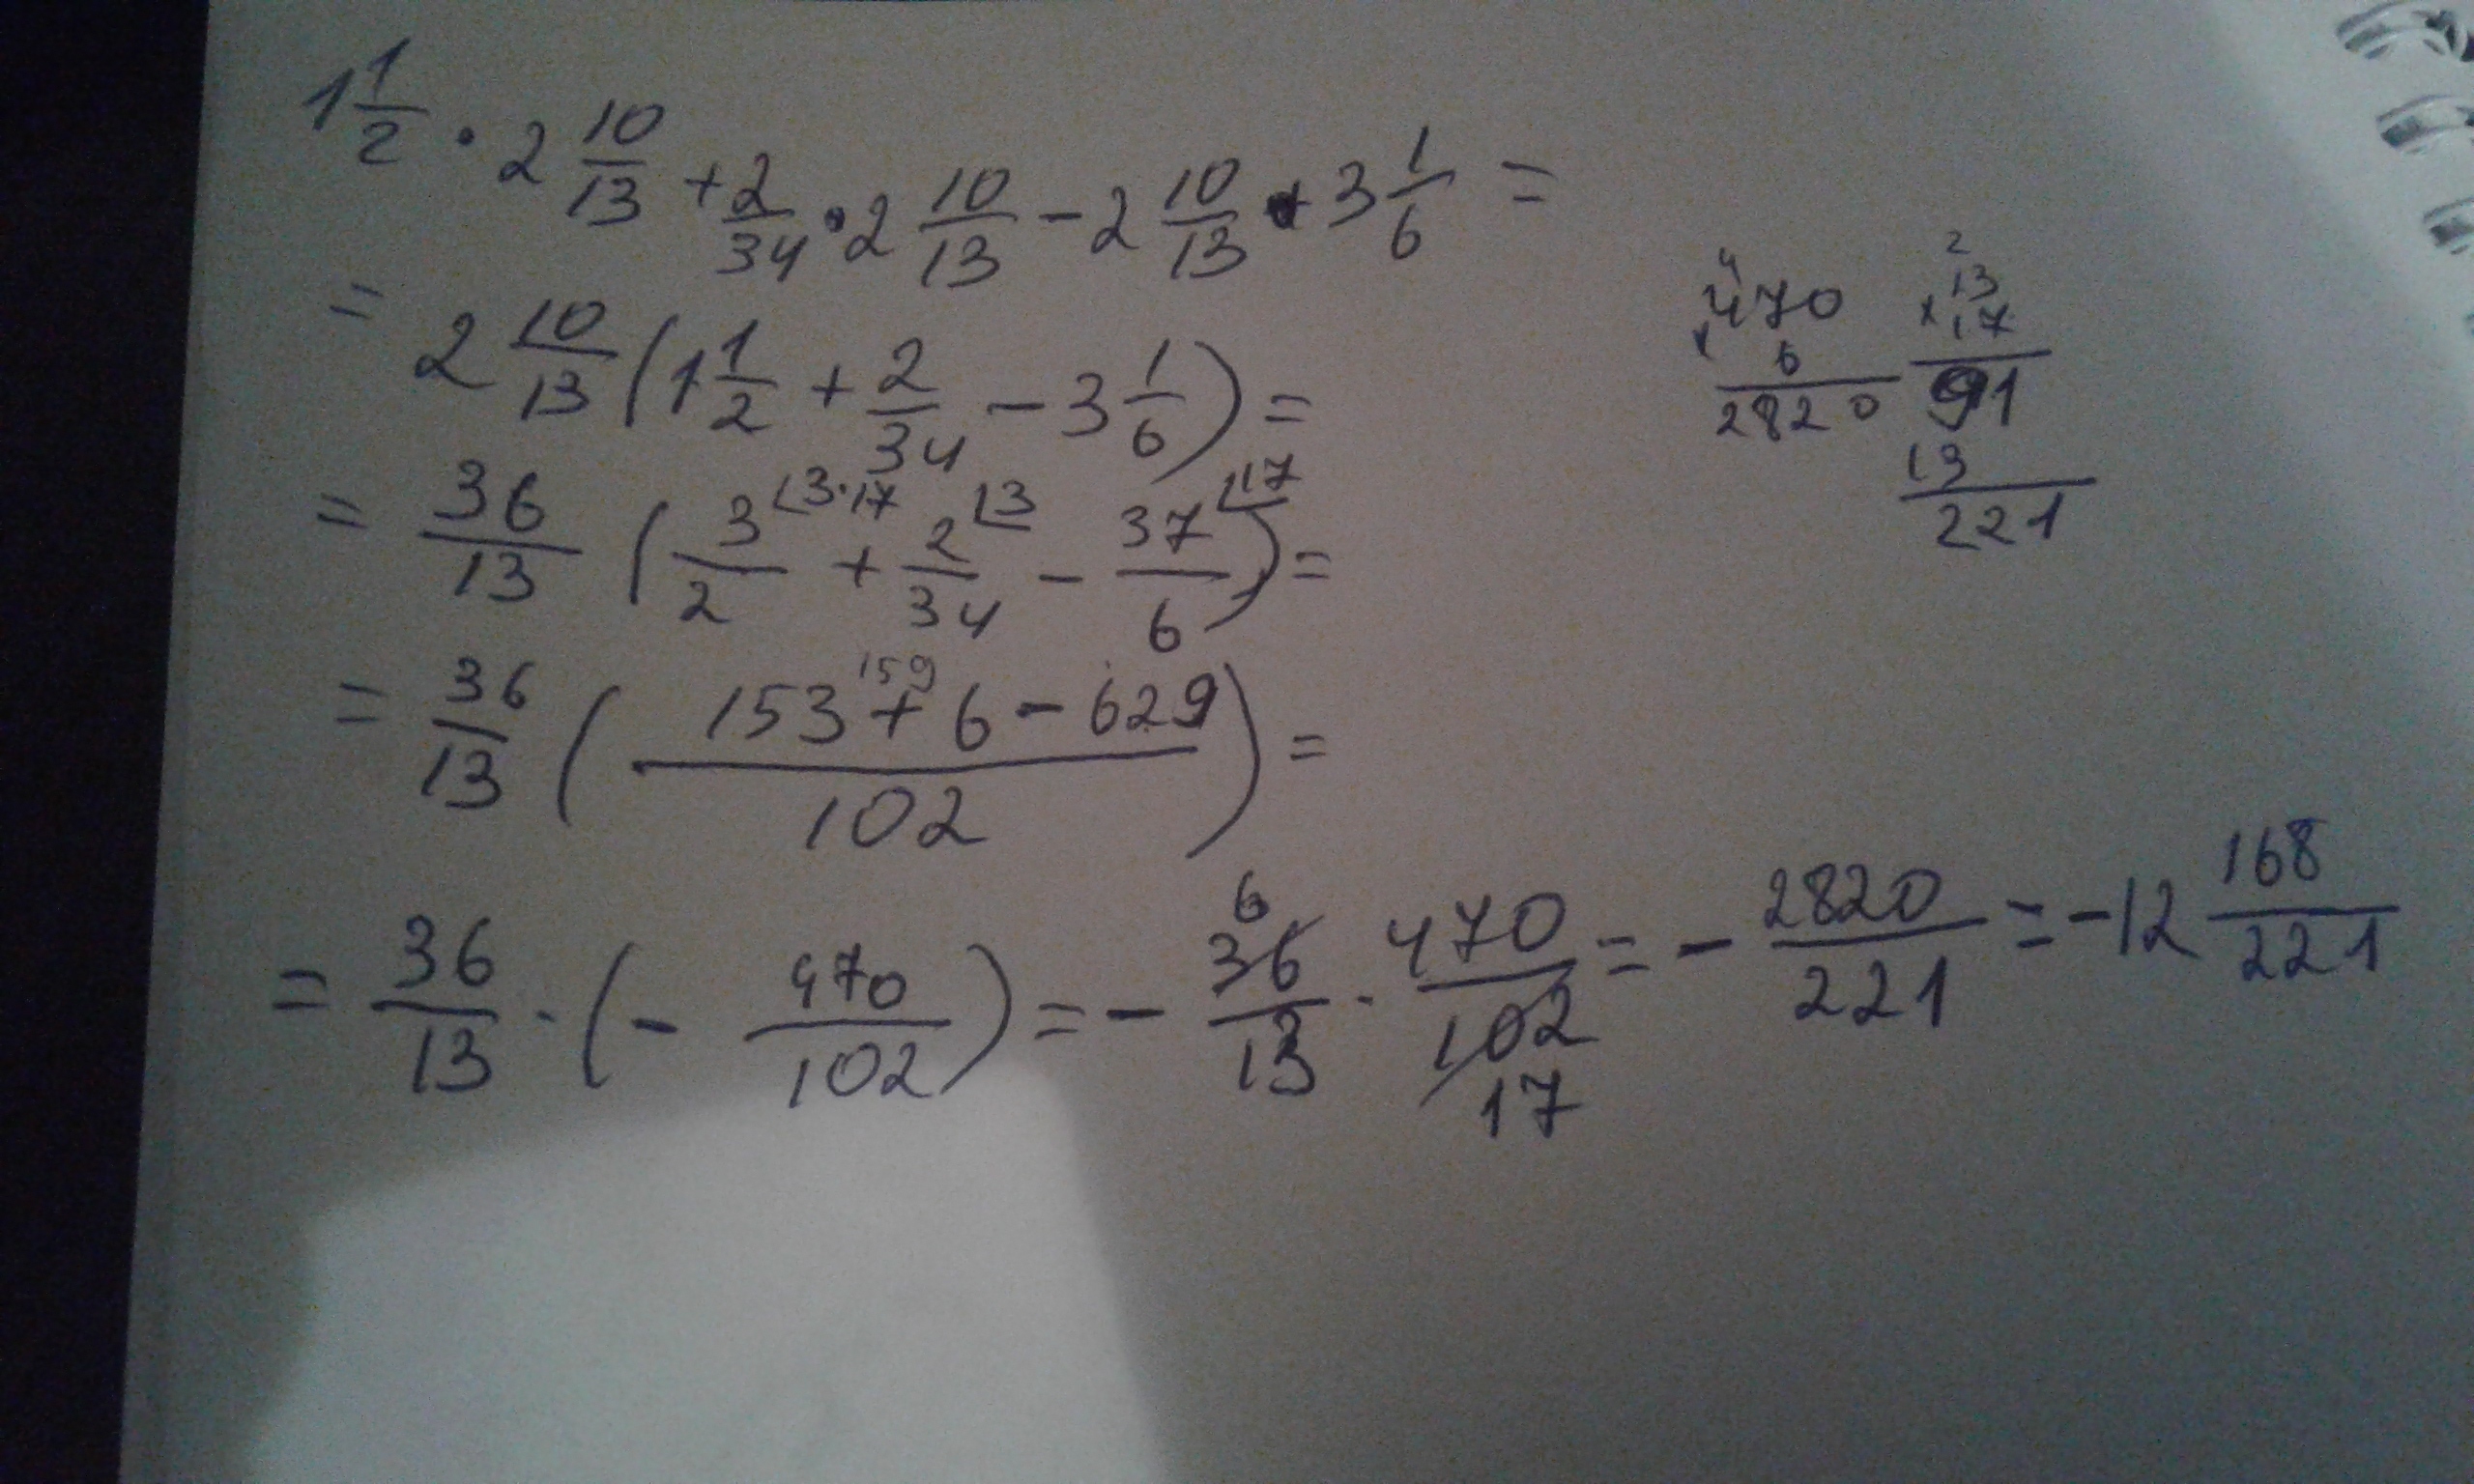 1 1/2 · 2 10/13 + 2/34 · 2 10/13 - 2 10/13 · 3 1/6 =
= 2 10/13 (1 1/2 + 2/34 - 3 1/6) =
= 36/13 (3/2 ⌊3·17 + 2/34 ⌊3 - 37/6 ⌊17) =
159
= 36/13 (153 + 6 - 629 / 102) =
= 36/13 · (- 470/102) = - 36/13 · 470/102 = - 2820/221 = -12 168/221
6
17
4
470
× 6
2820
2
13
× 17
91
13
221